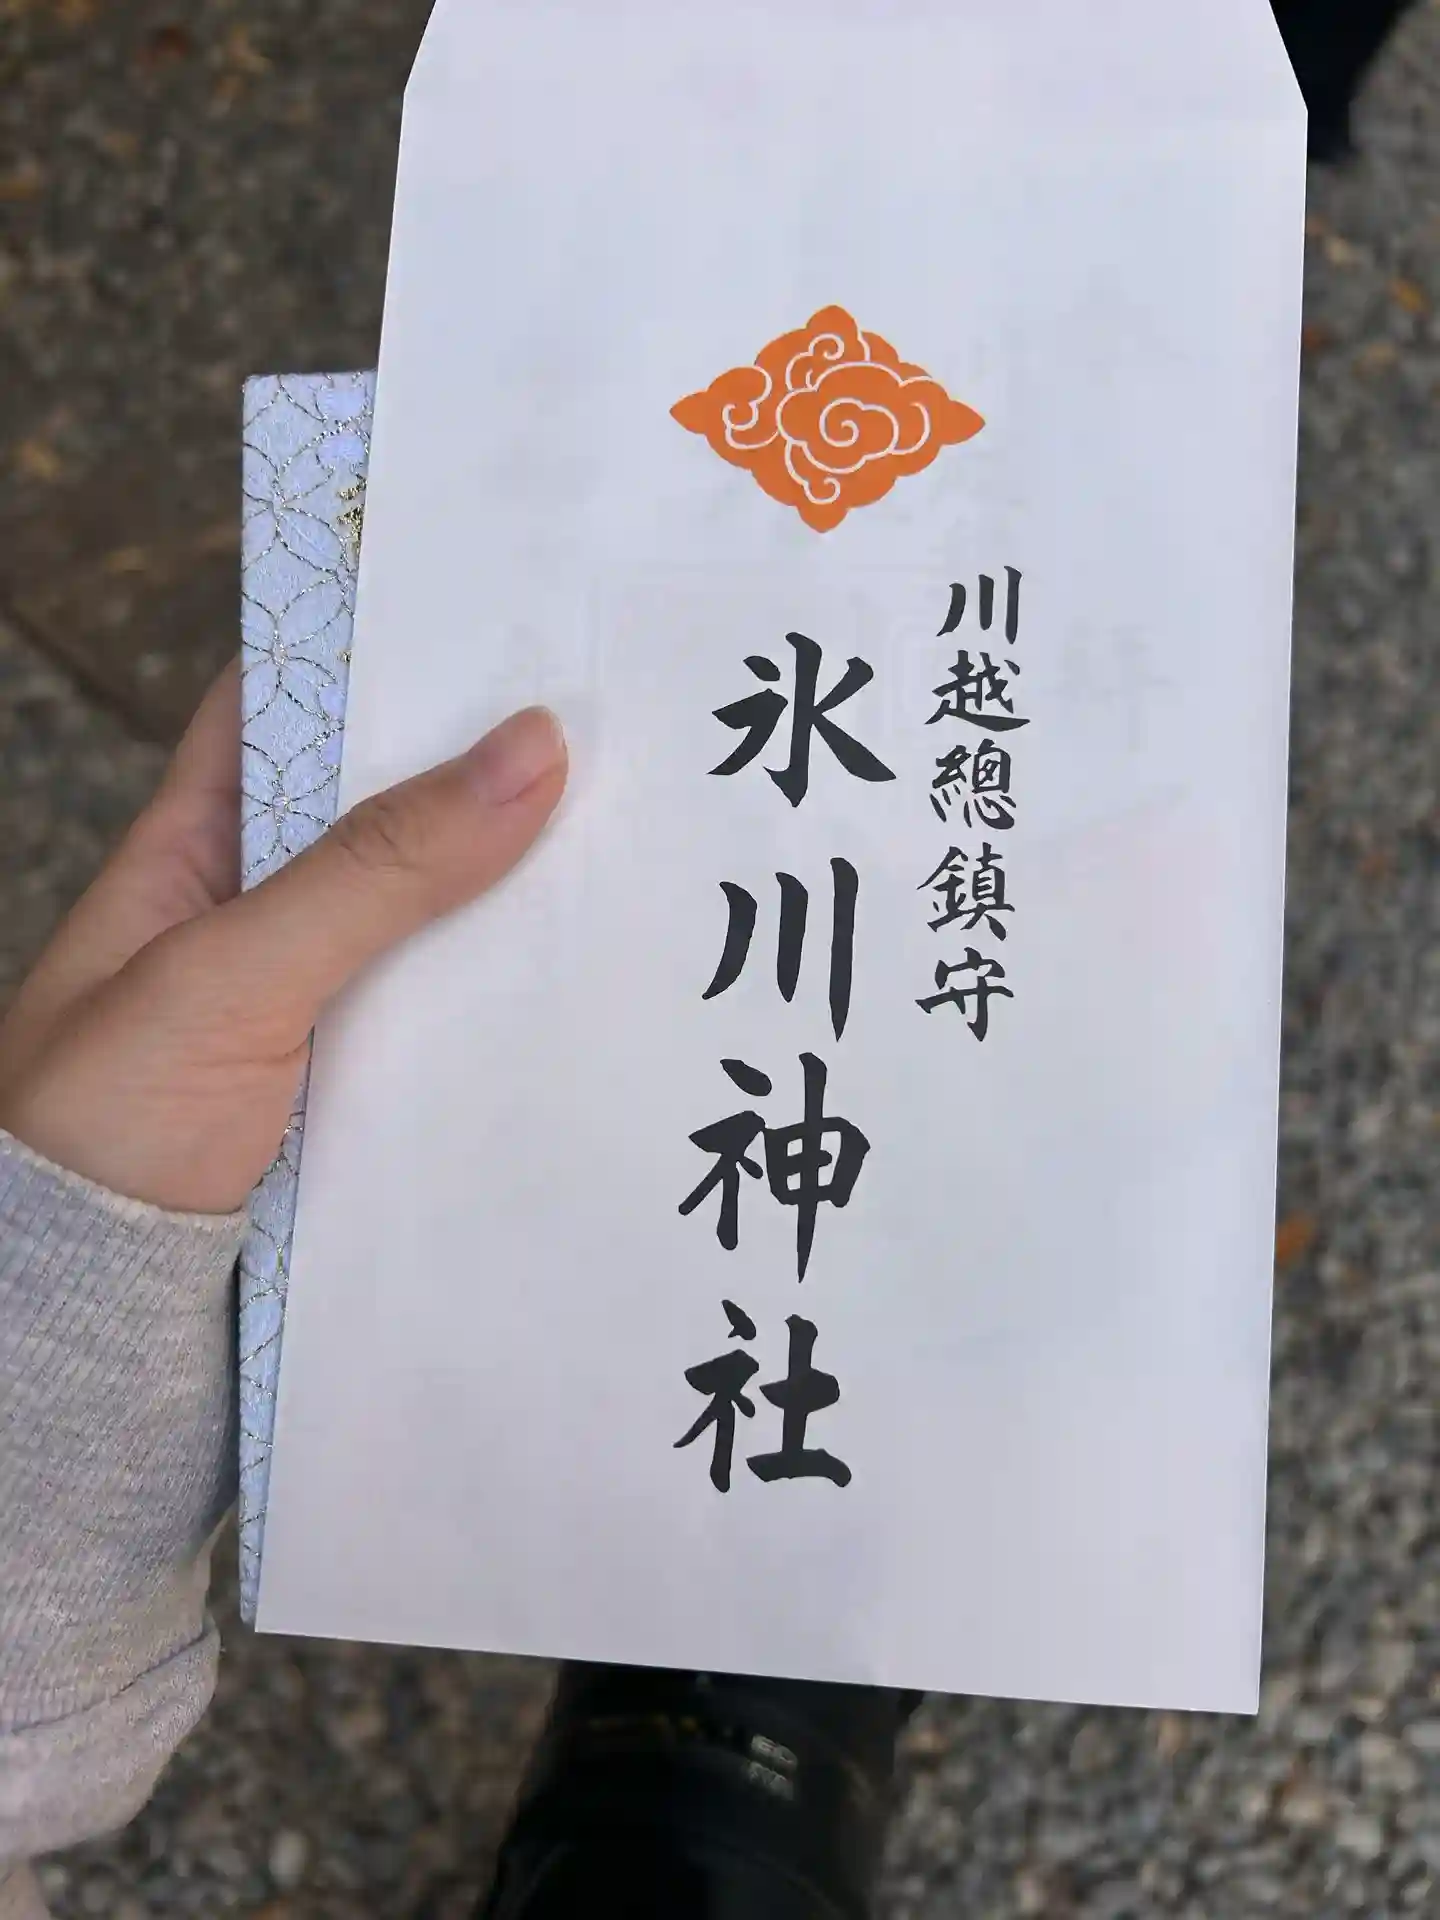 川越總鎮守
氷川神社